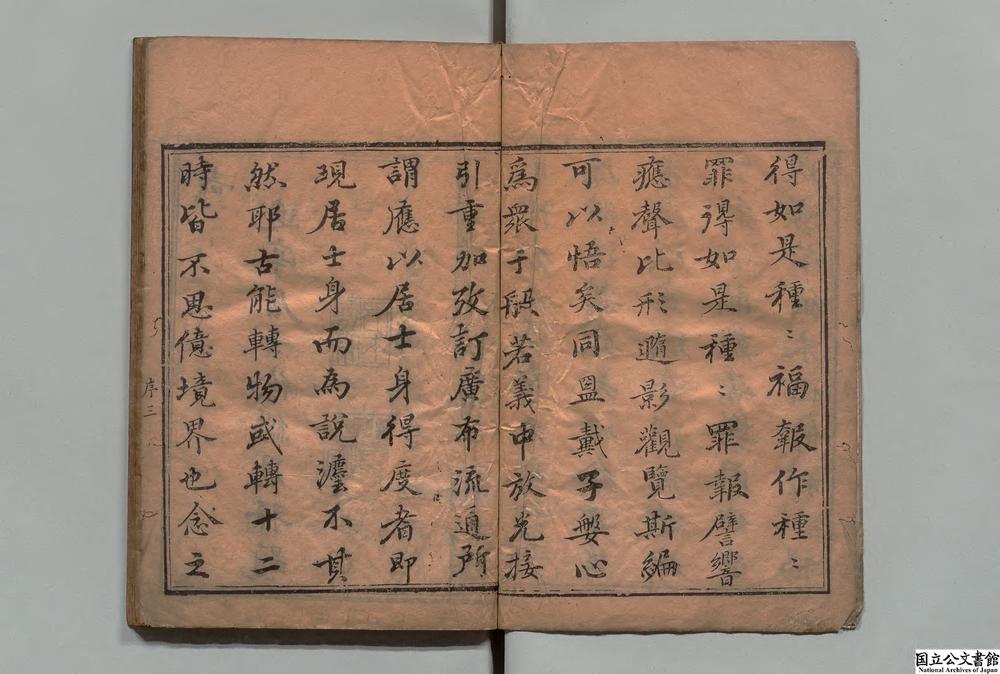 得如是種〻福報作種〻
罪得如是種〻罪報譬響
應聲比形隨影觀覽斯編
可以悟矣同盟戴子盤心
爲衆于般若義中放光接
引重加攷訂廣布流通所
謂應以居士身得度者即
現居士身而為說灋不其
然耶古能轉物或轉十二
時皆不思億境界也念之
序三
国立公文書館
National Archives of Japan